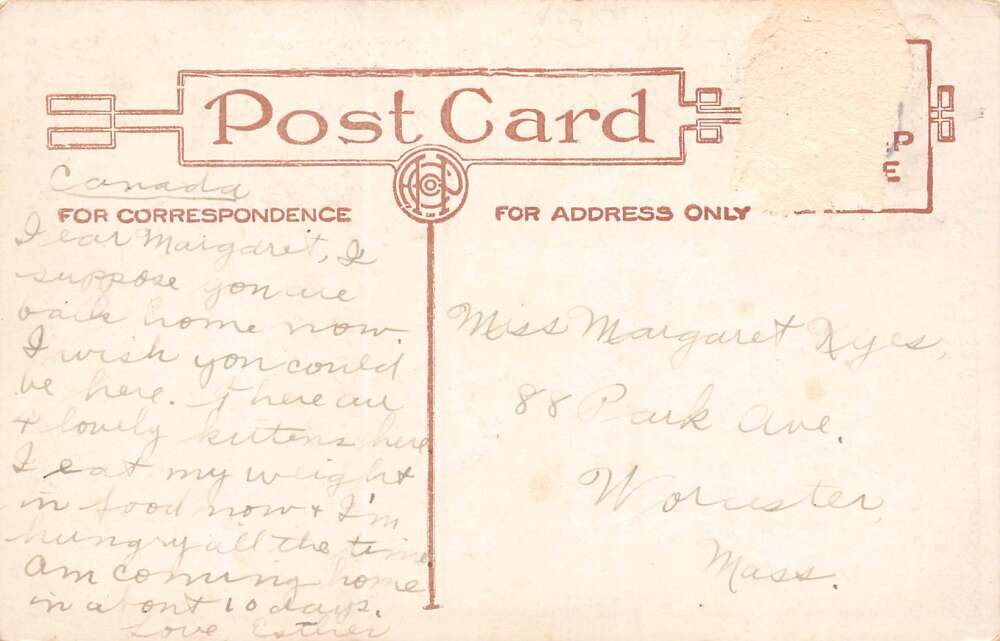 Post Card
P
E
Canada
FOR CORRESPONDENCE
FOR ADDRESS ONLY
Dear Margaret, I
suppose you are
back home now.
I wish you could
be here. There are
4 lovely kittens here
I eat my weight
in food now & I'm
hungry all the time
Am coming home
in about 10 days.
Love Esther
Miss Margaret Kyes,
88 Park Ave.
Worcester,
Mass.